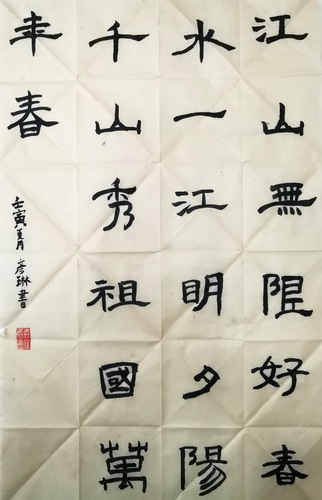 江山無限好春
水一江明夕陽
千山秀祖國萬
年春
壬寅夏月彦琳書